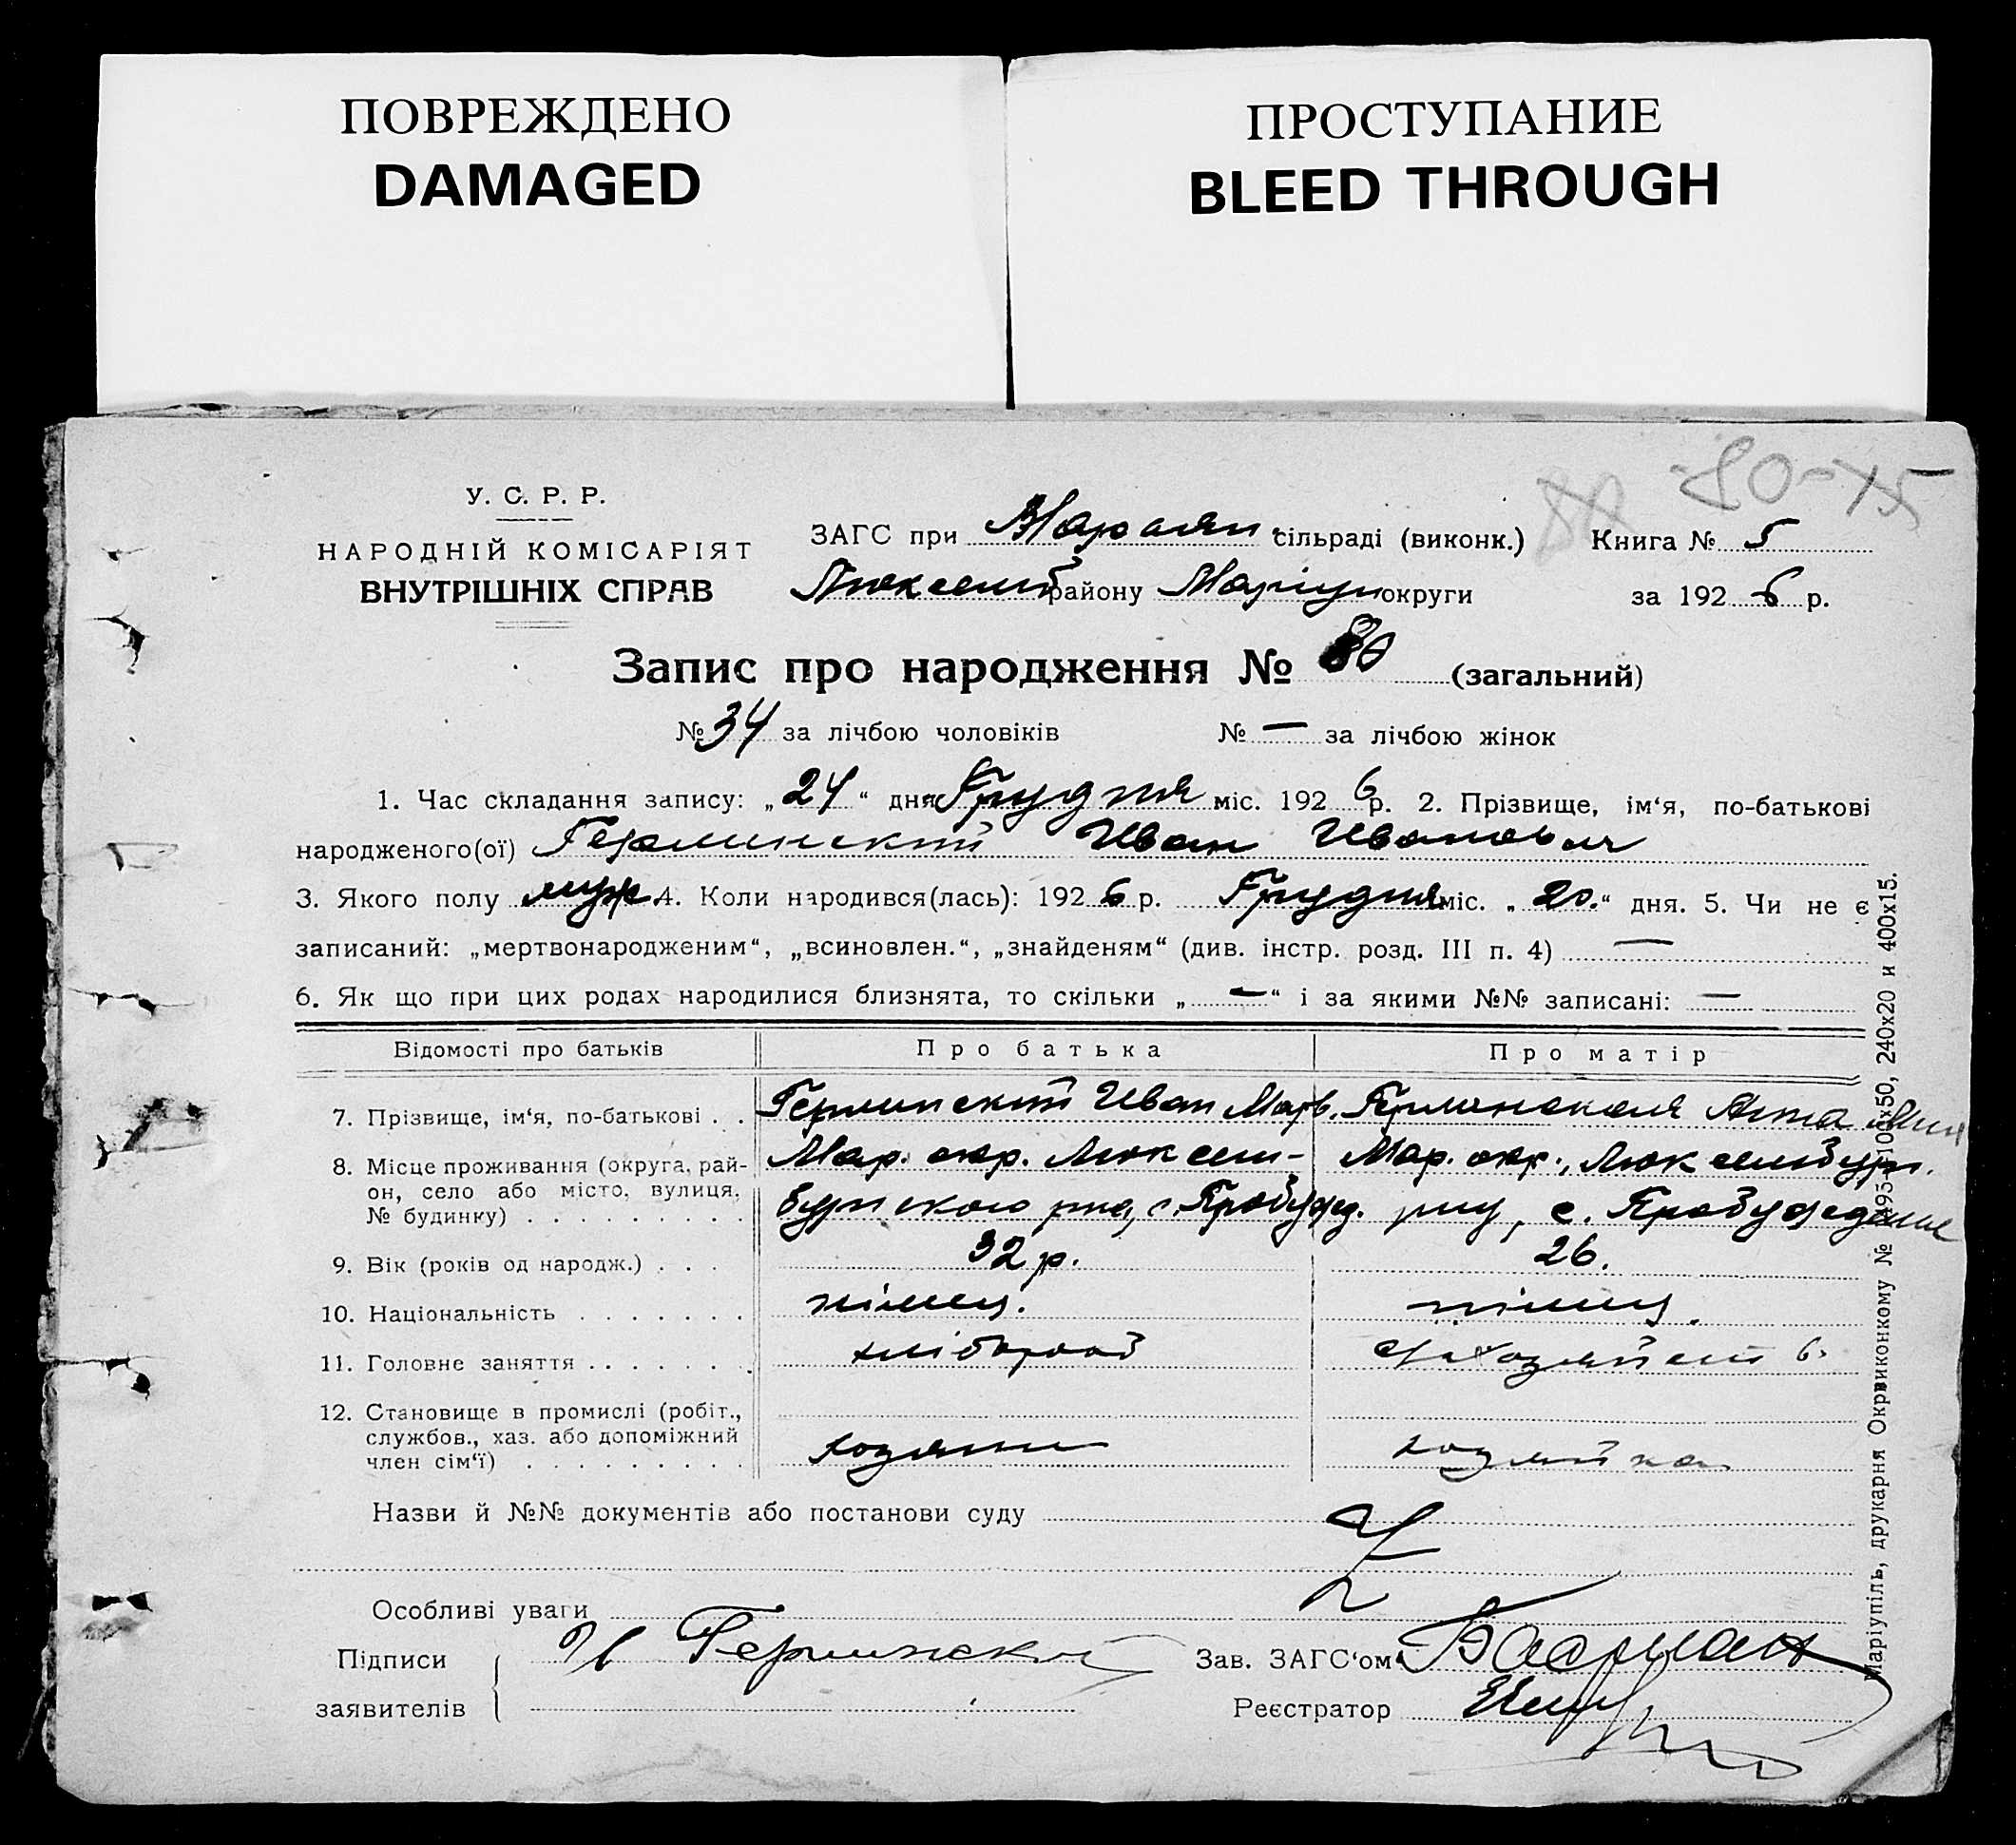 ПОВРЕЖДЕНО
DAMAGED
ПРОСТУПАНИЕ
BLEED THROUGH
80-15
У. С. Р. Р.
НАРОДНІЙ КОМІСАРІЯТ
ВНУТРІШНІХ СПРАВ
ЗАГС при сільраді (виконк.) Книга № 5
Люксемб району Маріуп округи за 1926 р.
Запис про народження № 80 (загальний)
№ 34 за лічбою чоловіків № — за лічбою жінок
1. Час складання запису: „24“ дня Грудня міс. 1926 р. 2. Прізвище, ім‘я, по-батькові
народженого(ої) Герминский Иван Иванович
3. Якого полу муж 4. Коли народився(лась): 1926 р. Грудня міс. „20.“ дня. 5. Чи не є
записаний: „мертвонародженим“, „всиновлен.“, „знайденям“ (див. інстр. розд. III п. 4) —
6. Як що при цих родах народилися близнята, то скільки „—“ і за якими №№ записані: —
Відомості про батьків Про батька Про матір
7. Прізвище, ім‘я, по-батькові . . Герминский Иван Герминская Анна
8. Місце проживання (округа, рай-
он, село або місто, вулиця,
№ будинку) . . . . . . . . .
Мар. окр. Люксем-
бургского рна, с. Пробужд.
Мар. окр., Люксембург.
рну, с. Пробуждение
9. Вік (років од народж.) . . . 32 р. 26.
10. Національність . . . . . . . німец. німец.
11. Головне заняття . . . . . . . хлібороб
12. Становище в промислі (робіт.,
службов., хаз. або допоміжний
член сім‘ї) . . . . . . . . .
хозяин хозяйка
Назви й №№ документів або постанови суду
Особливі уваги
Підписи
заявителів
И Герминский
Зав. ЗАГС‘ом
Реєстратор
Маріупіль, друкарня Окрвиконкому № 100х50, 240х20 и 400х15.